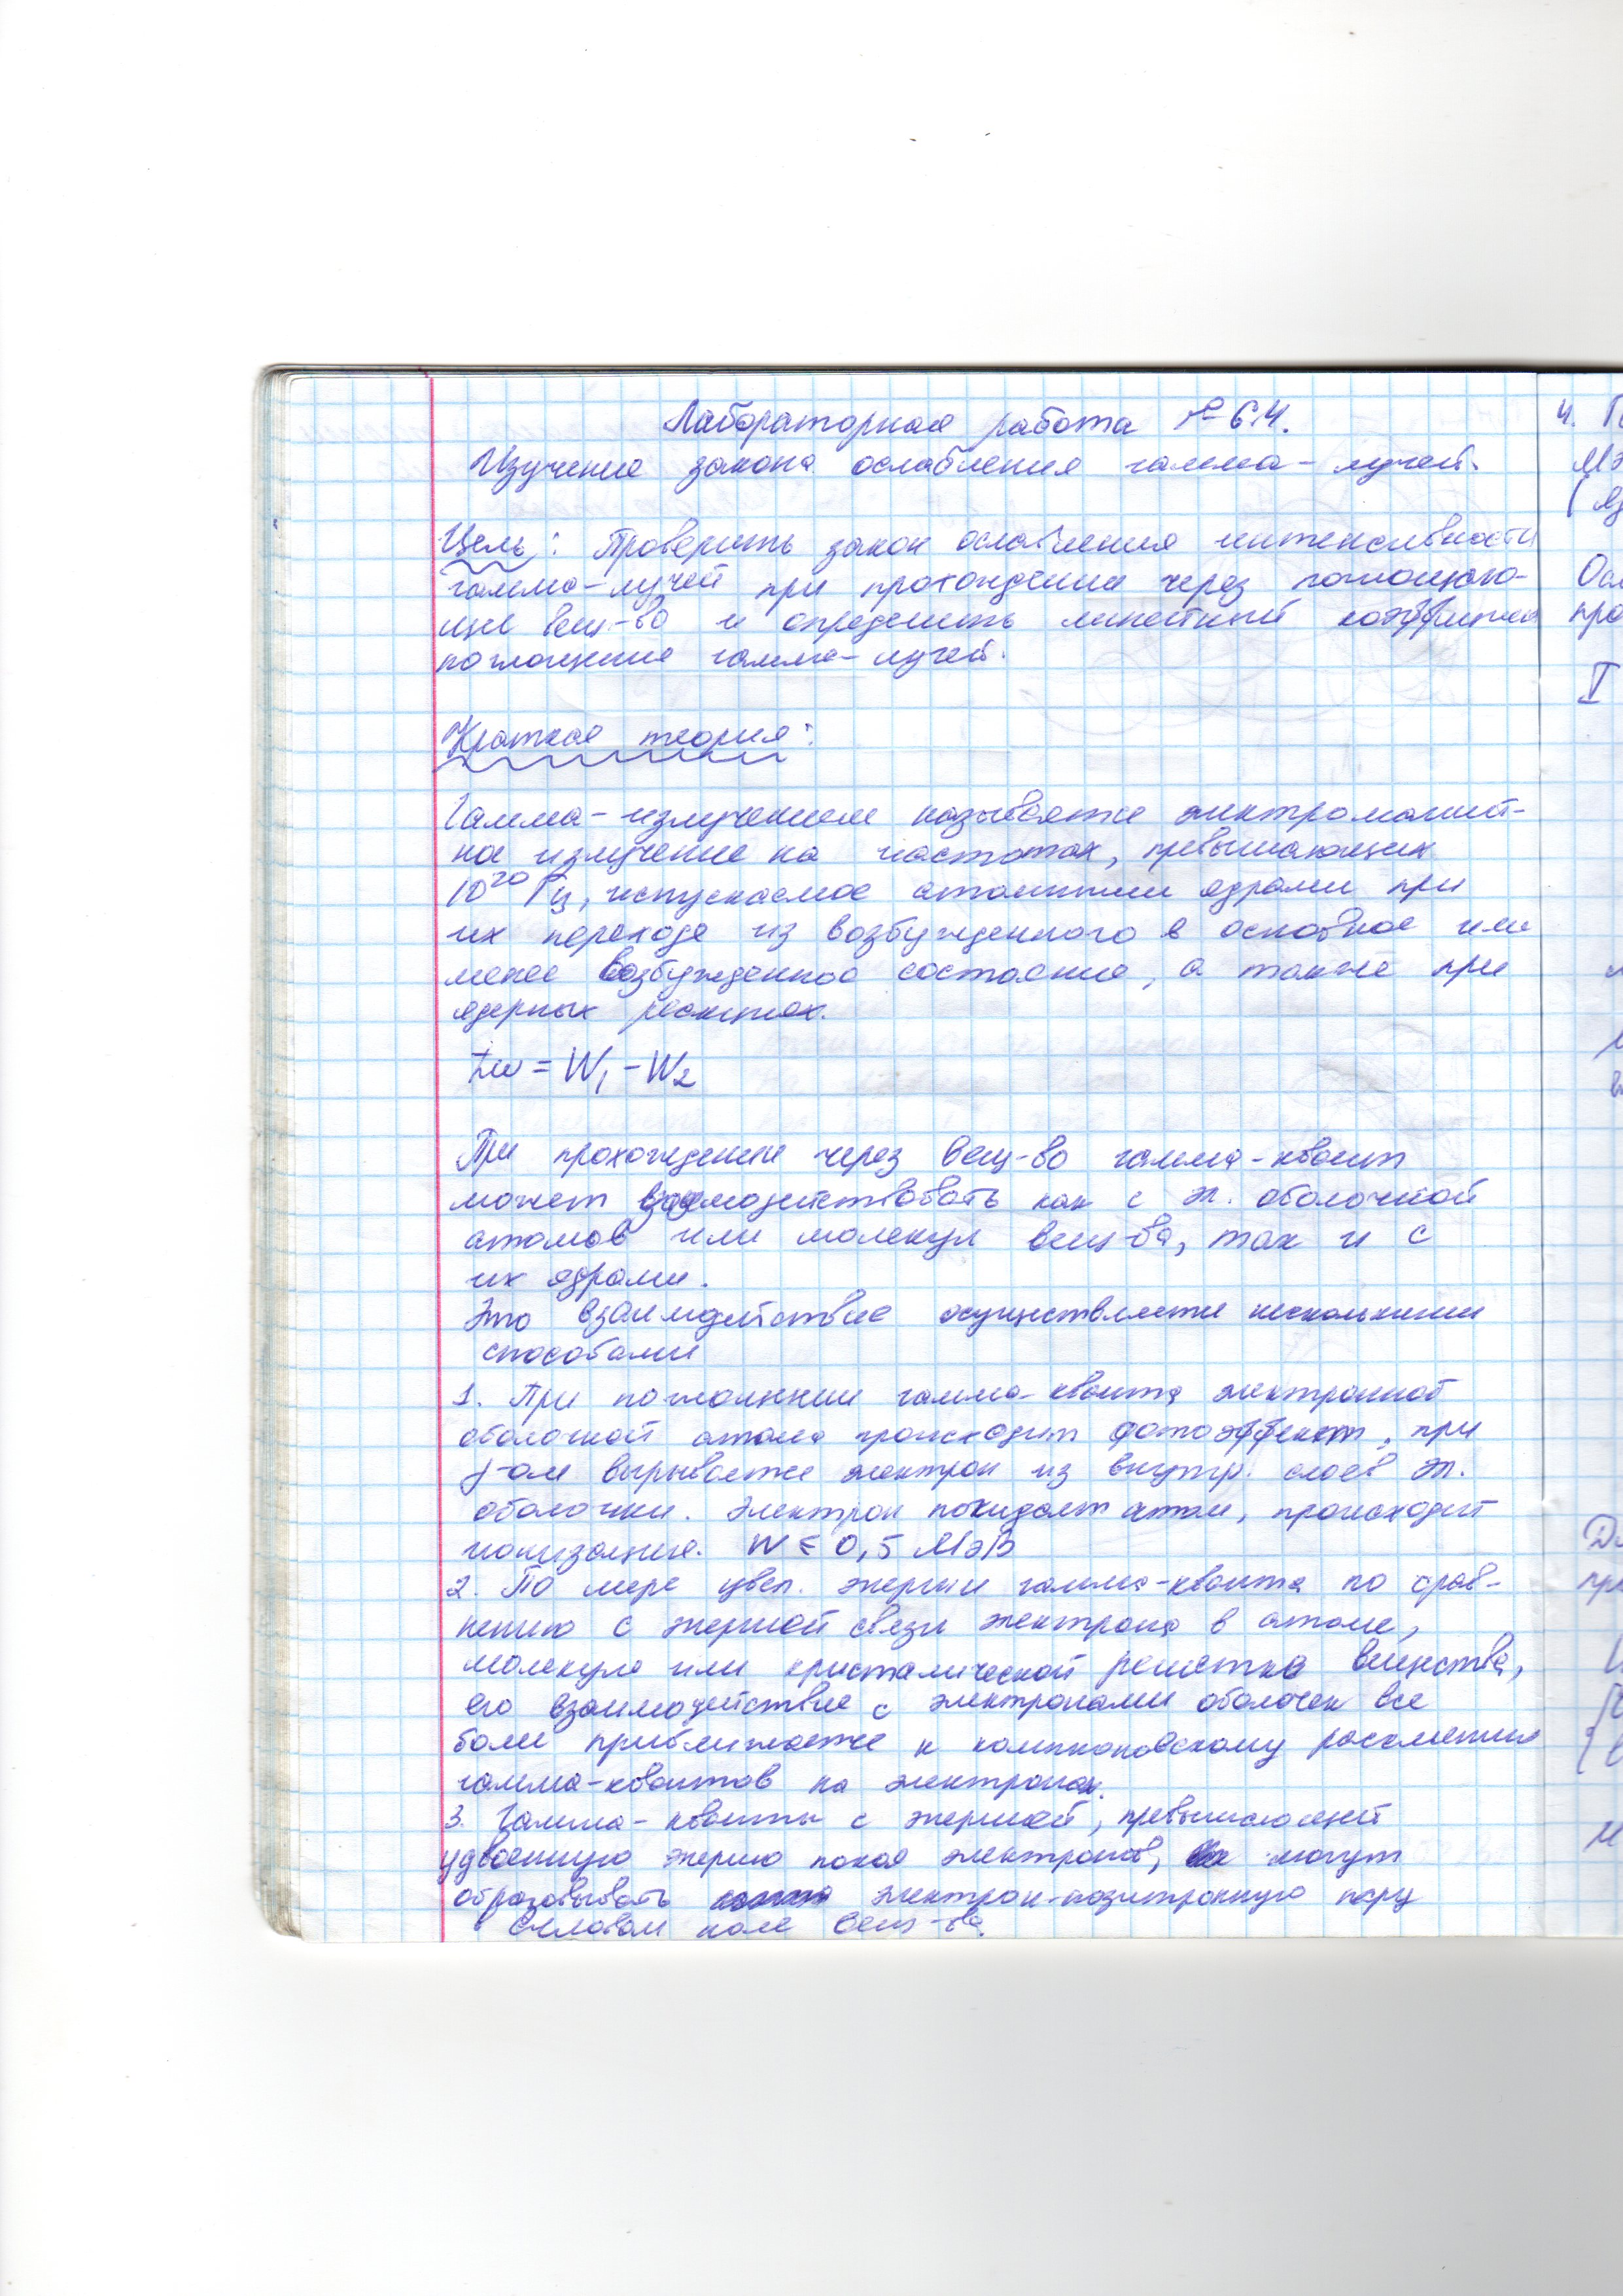 Лабораторная работа № 6.4.
Изучение закона ослабления гамма-лучей.
Цель: Проверить закон ослабления интенсивности
гамма-лучей при прохождении через поглощаю-
щее вещ-во и определить линейный коэффициент
поглощения гамма-лучей.
Краткая теория:
Гамма-излучением называется электромагнит-
ное излучение на частотах, превышающих
10²⁰ Гц, испускаемое атомными ядрами при
их переходе из возбужденного в основное или
менее возбужденное состояние, а также при
ядерных реакциях.
ħω = W₁ - W₂
При прохождении через вещ-во гамма-квант
может взаимодействовать как с эл. оболочкой
атомов или молекул вещ-ва, так и с
их ядрами.
Это взаимодействие осуществляется несколькими
способами
1. При поглощении гамма-кванта электронной
оболочкой атома происходит фотоэффект, при
к-ом вырывается электрон из внутр. слоев эл.
оболочки. Электрон покидает атом, происходит
ионизация. W ≤ 0,5 МэВ
2. По мере увел. энергии гамма-кванта по срав-
нению с энергией связи электрона в атоме,
молекуле или кристалической решетке вещества,
его взаимодействие с электронами оболочек все
более приближается к комптоновскому рассеянию
гамма-квантов на электронах.
3. Гамма-кванты с энергией, превышающей
удвоенную энергию покоя электронов, могут
образовывать электрон-позитронную пару
в силовом поле вещ-ва.
4.